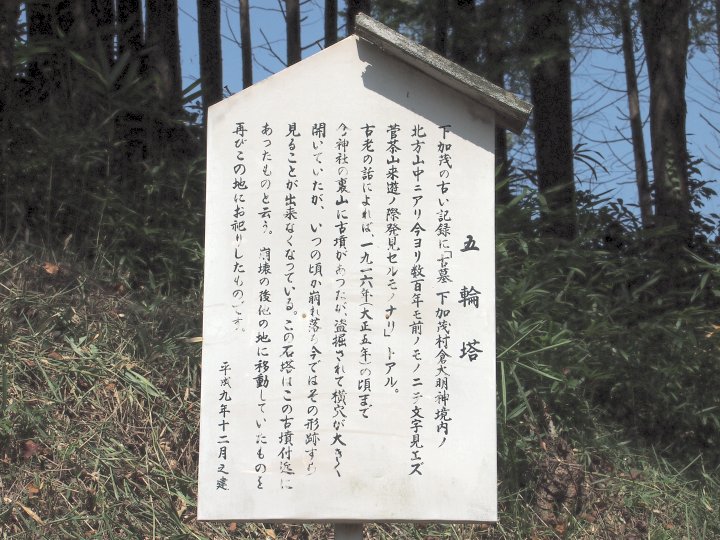 五輪塔
下加茂の古い記録に「古墓 下加茂村倉大明神境内ノ
北方山中ニアリ今ヨリ数百年モ前ノモノニテ文字見エズ
菅茶山来遊ノ際発見セルモノナリ」トアル。
古老の話によれば、一九一六年(大正五年)の頃まで
今神社の裏山に古墳があったが、盗掘されて横穴が大きく
開いていたが、いつの頃か崩れ落ち今ではその形跡すら
見ることが出来なくなっている。この石塔はこの古墳付近に
あったものと云う。崩壊の後他の地に移動していたものを
再びこの地にお祀りしたものです。
平成九年十二月之建